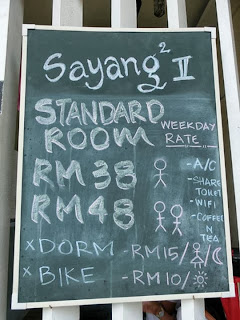 Sayang² II
STANDARD
ROOM
WEEKDAY
RATE
RM38
RM48
- A/C
- SHARE
TOILET
- WIFI
- COFFEE
N
TEA
x DORM - RM15/
x BIKE - RM10/